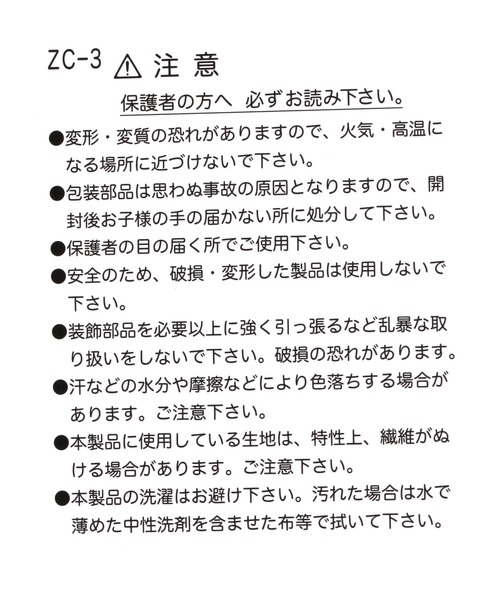 ZC-3 ⚠ 注意
保護者の方へ 必ずお読み下さい。
●変形・変質の恐れがありますので、火気・高温に
なる場所に近づけないで下さい。
●包装部品は思わぬ事故の原因となりますので、開
封後お子様の手の届かない所に処分して下さい。
●保護者の目の届く所でご使用下さい。
●安全のため、破損・変形した製品は使用しないで
下さい。
●装飾部品を必要以上に強く引っ張るなど乱暴な取
り扱いをしないで下さい。破損の恐れがあります。
●汗などの水分や摩擦などにより色落ちする場合が
あります。ご注意下さい。
●本製品に使用している生地は、特性上、繊維がぬ
ける場合があります。ご注意下さい。
●本製品の洗濯はお避け下さい。汚れた場合は水で
薄めた中性洗剤を含ませた布等で拭いて下さい。